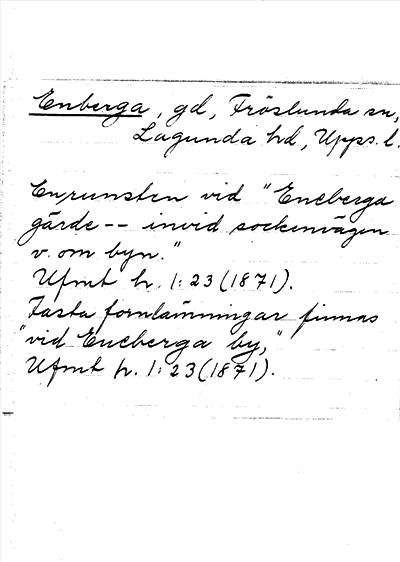 Enberga, gd, Fröslunda sn,
Lagunda hd, Upps. l.
En runsten vid "Eneberga
gärde -- invid sockenvägen
v. om byn."
Ufmt h. 1:23 (1871).
Fasta fornlämningar finnas
"vid Eneberga by,"
Ufmt h. 1:23 (1871).